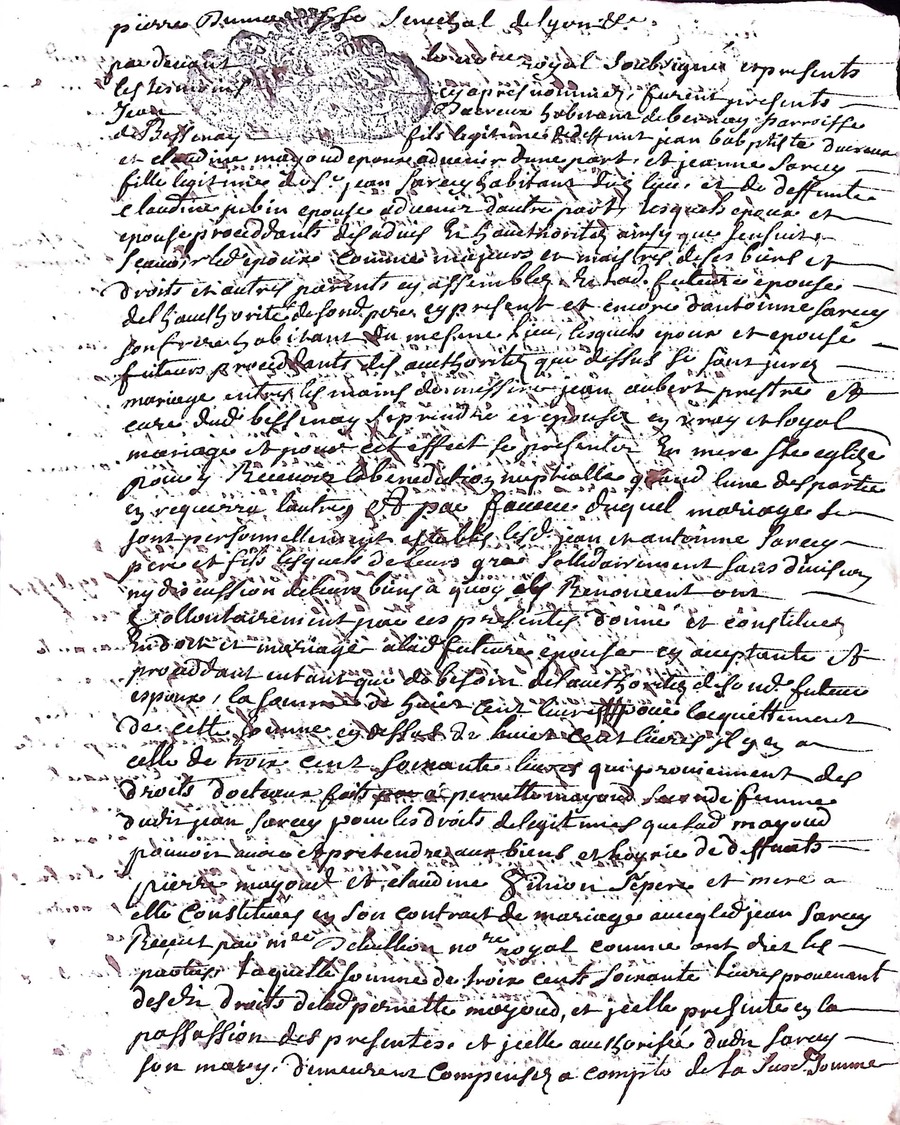 pierre Dumas Senechal de lyon
par devant le notre royal Soubsigné et presents
les tesmoins cy apres nommez, furent presents
Jean Ducreux habitant de bernay parroisse
de Bessenay fils legitime de deffunt jean baptiste ducreux
et claudine mayoud epoux advenir d'une part, et jeanne Sarcey
fille legitime de Sr jean Sarcey habitant dud lieu, et de deffunte
Claudine jubin epouse advenir d'autre part, lesquels epoux et
epouse proceddants des advis et hauthoritez ainsy que s'ensuit
scavoir led epoux comme majeurs et maistres de ses biens et
droits et autres parents cy assemblez et lad. future epouse
de l'hauthorité de sond. pere cy present et encore d'antoinne Sarcey
son frere habitant du mesme lieu, lesquels epoux et epouse
futeurs proceddants des authoritez que dessus se sont jurez
mariage entre les mains de messire jean aubert prestre et
curé dud. bessenay se prendre et epouser en vray et loyal
mariage et pour cet effect se presenter en mere Ste eglize
pour y Recevoir la benediction nuptialle quand l'une des partie
en requerra l'autre, Et par faveur duquel mariage se
sont personnellement establis lesd. jean et antoinne Sarcey
pere et fils lesquels de leurs gré sollidairement sans division
ny discussion de leurs biens à quoy ils Renoncent ont
Vollontairement par ces presentes donné et constituez
En dot et mariage à lad future epouse cy acceptante et
proceddant entant que de besoin de l'authoritez de sond. futeur
espoux, la somme de huict cent livres pour l'acquittement
de cette somme cy dessus de huict cent livres il y en a
celle de trois cent soixante livres qui proviennent des
droits docteaux faits a pernette mayoud femme
dudit jean Sarcey pour les droits de legitimes que lad mayoud
pouvoir avoir et pretendre aux biens et hoyrie de deffuncts
pierre mayoud et claudine Simon se pere et mere a
elle Constituées en son contrat de mariage avec led jean Sarcey
Receut par me Debullion nore royal comme ont dict les
parties laquelle somme de trois cents soixante livres provenant
desdit droits de lad pernette mayoud, et jcelle presente en la
passassion des presentes, et jcelle authorisée dudit Sarcey
son mary, demeurent compensez a compte de la susd. somme